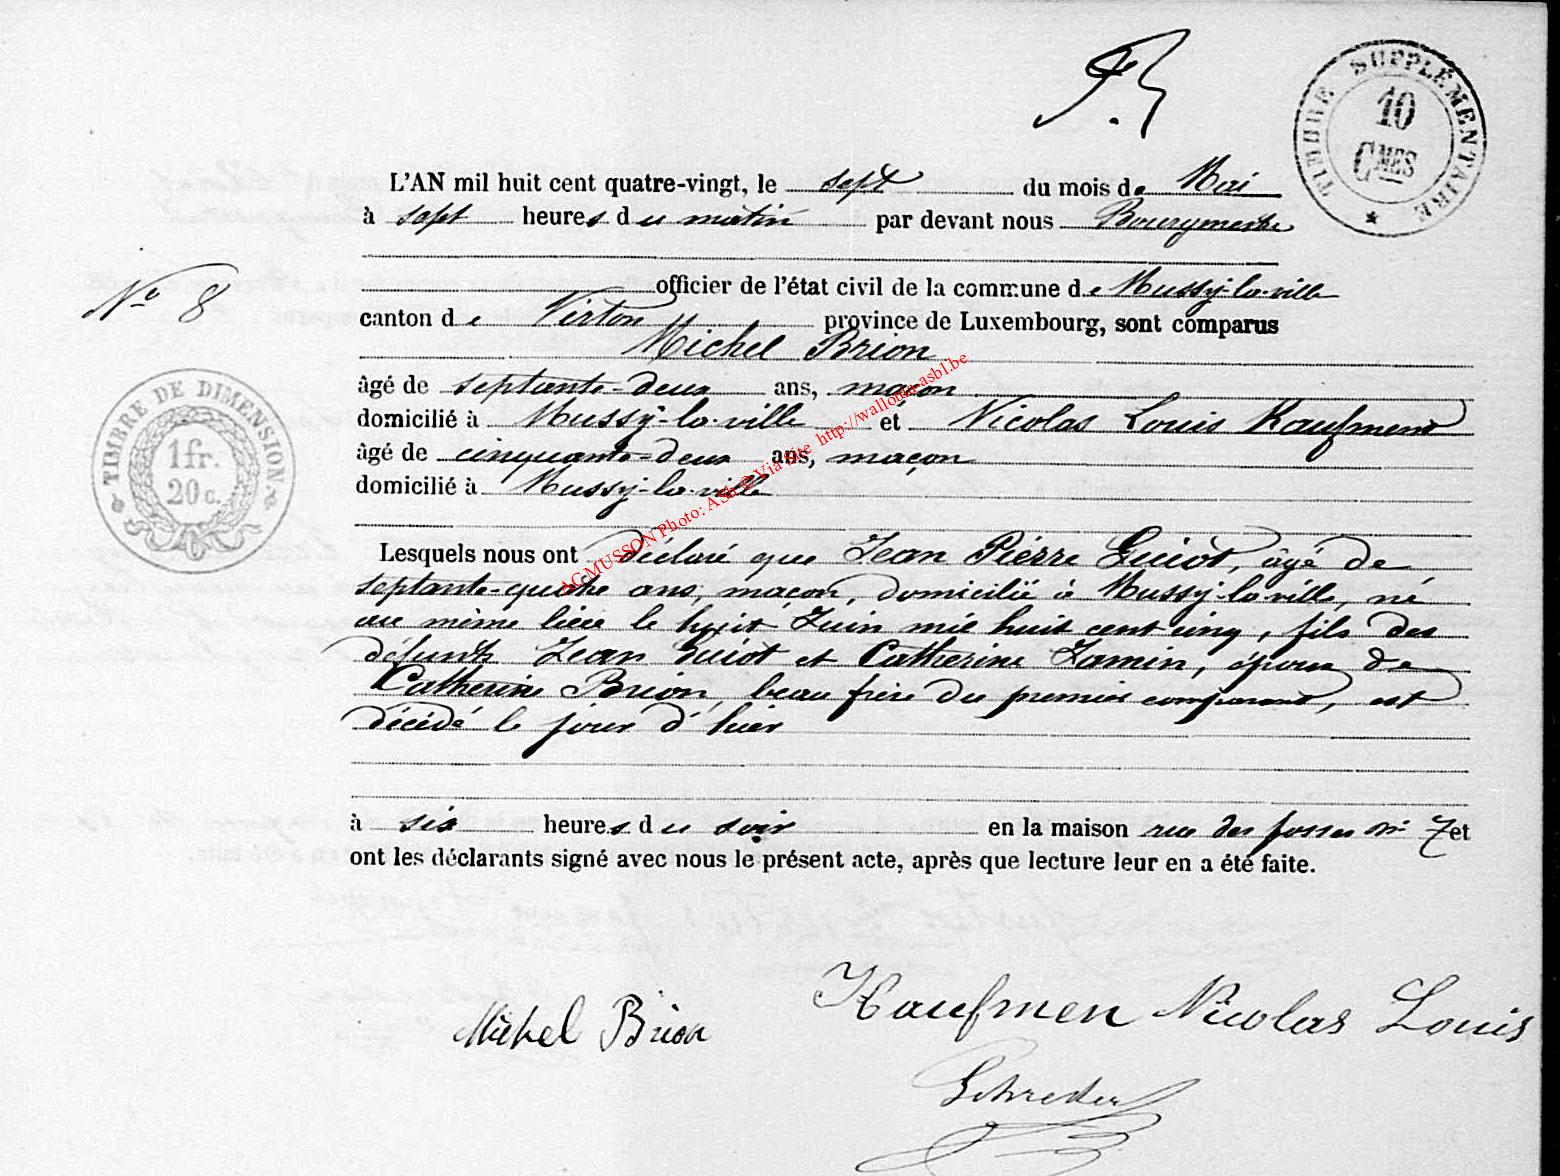 TIMBRE SUPPLÉMENTAIRE
10
CMES
L'AN mil huit cent quatre-vingt, le sept du mois de Mai
à sept heures du matin par devant nous Bourgmestre
officier de l'état civil de la commune de Mussy-la-ville
N° 8
canton de Virton province de Luxembourg, sont comparus
Michel Brion
âgé de septante-deux ans, maçon
domicilié à Mussy-la-ville et Nicolas Louis Kaufmend
âgé de cinquante-deux ans, maçon
domicilié à Mussy-la-ville
TIMBRE DE DIMENSION
1 fr.
20 c.
AG MUSSON Photo: ASBL Via Site http://wallonia-asbl.be
Lesquels nous ont déclaré que Jean Pierre Guiot, âgé de
septante-quatre ans, maçon, domicilié à Mussy-la-ville, né
au même lieu le huit Juin mil huit cent cinq, fils des
défunts Jean Guiot et Catherine Jamin, époux de
Catherine Brion, beau frère du premier comparant, est
décédé le jour d'hier
à six heures du soir en la maison rue des fosses n° 7 et
ont les déclarants signé avec nous le présent acte, après que lecture leur en a été faite.
Michel Brion
Kaufmen Nicolas Louis